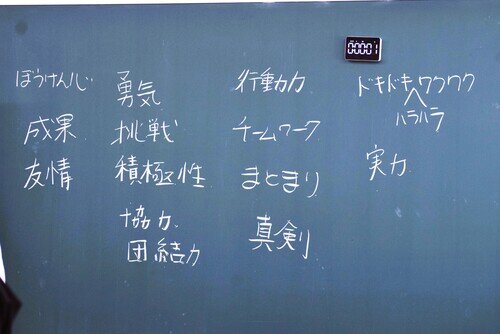 00001
ぼうけん心
成果
友情
勇気
挑戦
積極性
協力
団結力
行動力
チームワーク
まとまり
真剣
ドキドキワクワク
ハラハラ
実力